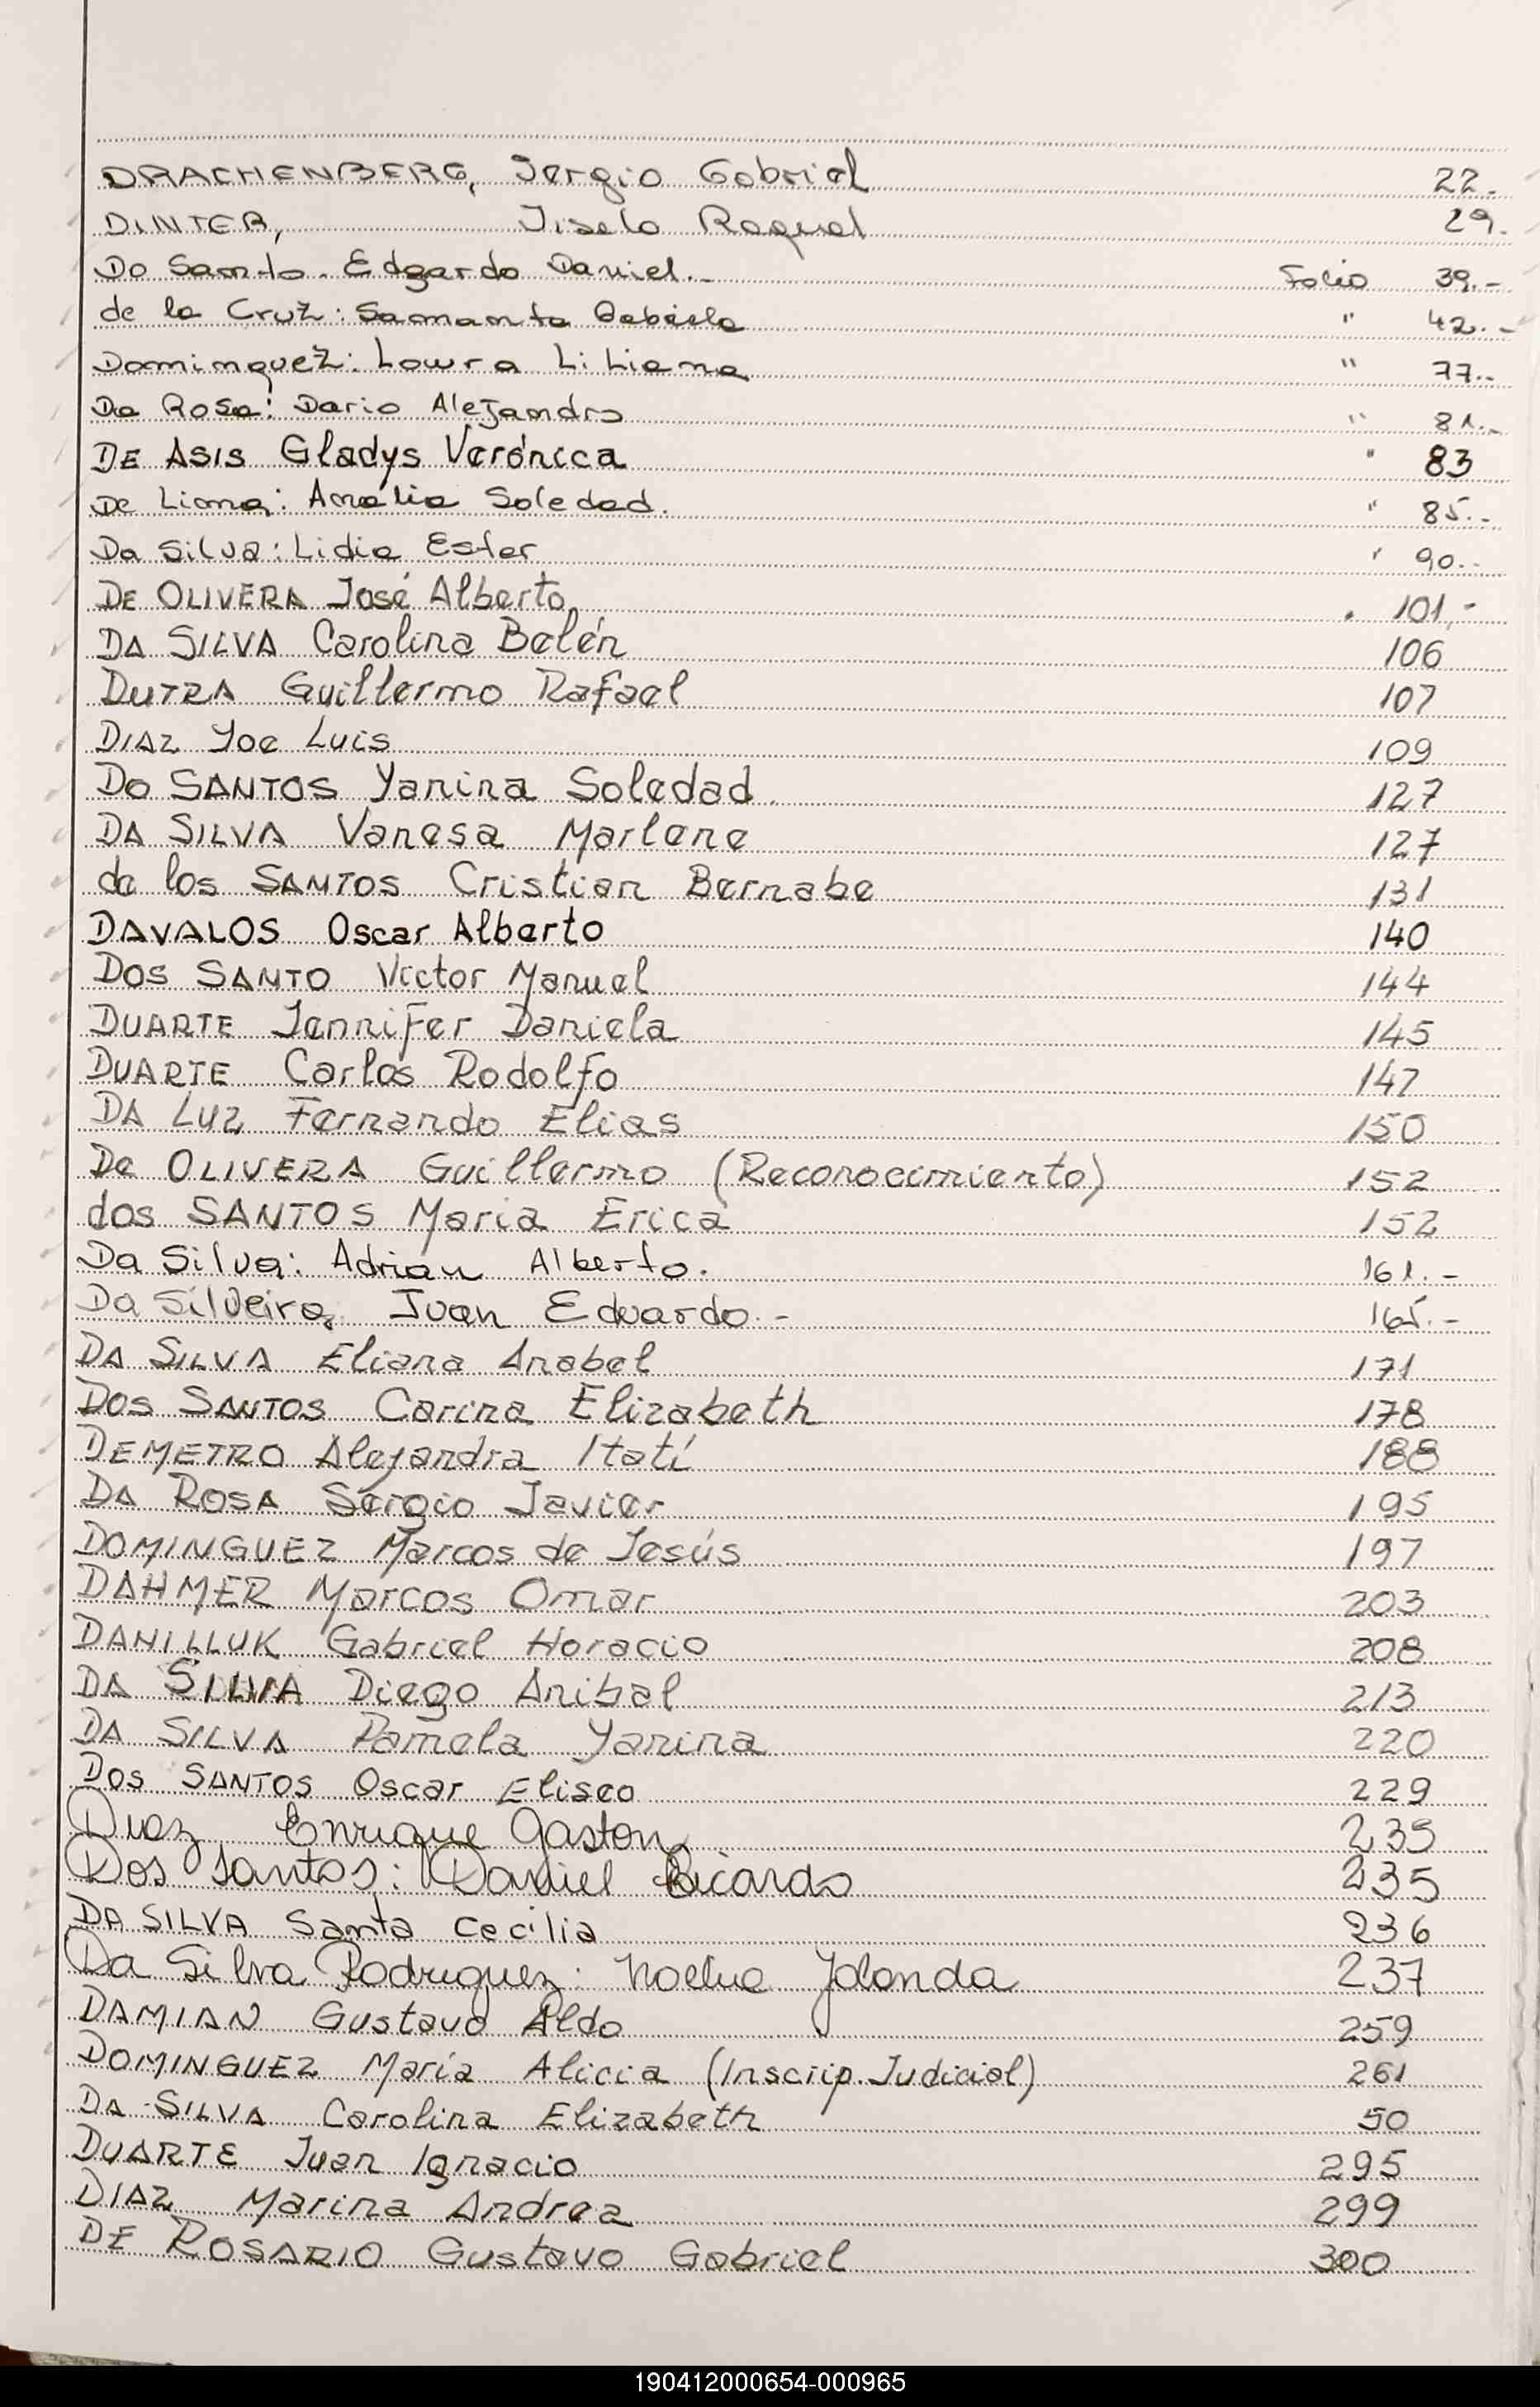 DRACHENBERG, Sergio Gabriel 22.
DINTER, Jisela Raquel 29.
Do Santo. Edgardo Daniel.- Folio 39.-
de la Cruz: Samanta Gabiela " 42.-
Dominguez: Lowra Liliana " 77.-
Da Rosa: Dario Alejandro " 81.-
DE ASIS Gladys Verónica " 83
De Lima: Amalia Soledad. " 85.-
Da Silva: Lidia Ester " 90.-
DE OLIVERA José Alberto " 101,-
DA SILVA Carolina Belén 106
DUTRA Guillermo Rafael 107
DIAZ Yoe Luis 109
Do SANTOS Yanina Soledad. 127
DA SILVA Vanesa Marlene 127
de los SANTOS Cristian Bernabe 131
DAVALOS Oscar Alberto 140
DOS SANTO Victor Manuel 144
DUARTE Jennifer Daniela 145
DUARTE Carlos Rodolfo 147
DA LUZ Fernando Elias 150
De OLIVERA Guillermo (Reconocimiento) 152
dos SANTOS Maria Erica 152
Da Silva: Adrián Alberto. 161.-
Da Silveira Juan Eduardo.- 165.-
DA SILVA Eliana Anabel 171
DOS SANTOS Carina Elizabeth 178
DEMETRO Alejandra Itatí 188
DA ROSA Sergio Javier 195
DOMINGUEZ Marcos de Jesús 197
DAHMER Marcos Omar 203
DANILLUK Gabriel Horacio 208
DA SILVA Diego Anibal 213
DA SILVA Pamela Yanina 220
DOS SANTOS Oscar Eliseo 229
Enrique Gaston 235
Dos Santos: Daniel Ricardo 235
DA SILVA Santa Cecilia 236
Da Silva Rodriguez: Noelia Jolanda 237
DAMIAN Gustavo Aldo 259
DOMINGUEZ María Alicia (Inscrip. Judicial) 261
DA SILVA Carolina Elizabeth 50
DUARTE Juan Ignacio 295
DIAZ Marina Andrea 299
DE ROSARIO Gustavo Gabriel 300
190412000654-000965